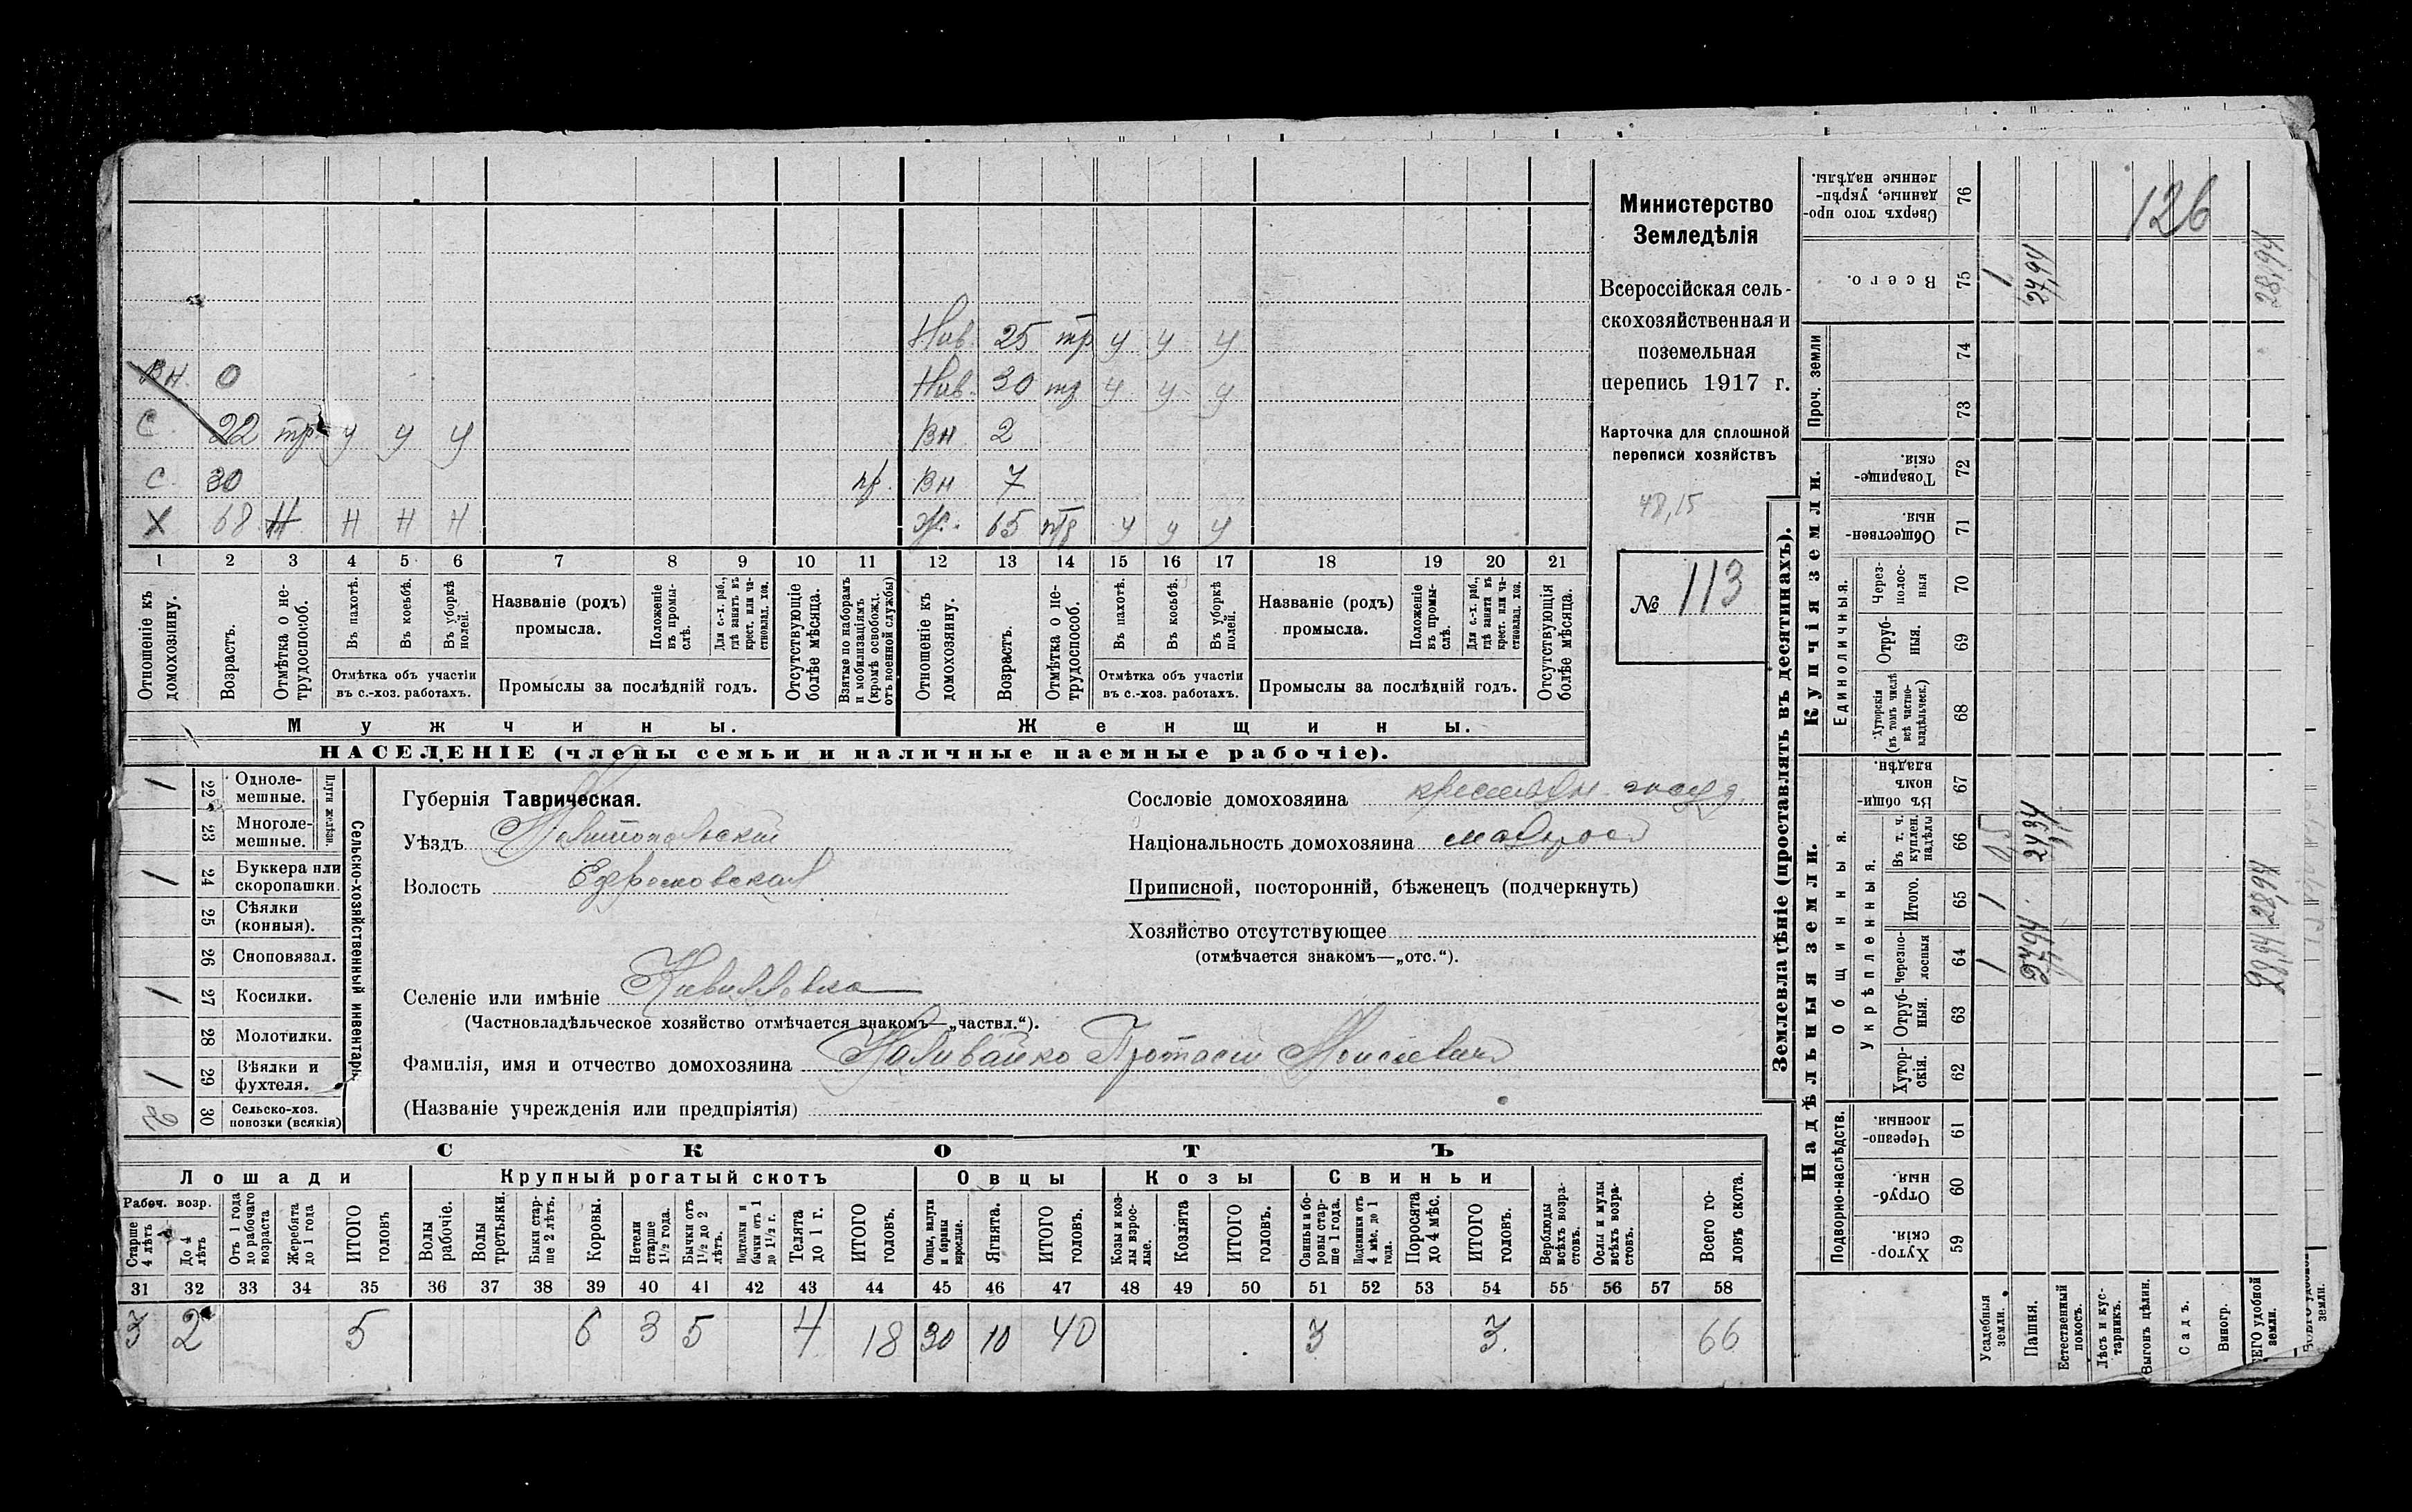 Министерство
Земледѣлія
Всероссійская сель-
скохозяйственная и
поземельная
перепись 1917 г.
Карточка для сплошной
переписи хозяйствъ
48,15
№ 113
126
Нав. 25 тр у у у
Вн. 0 Нав. 30 тр у у у
С. 22 тр у у у Вн 2
С. 30 Вн 7
X 68 Н Н Н Н Ж. 65 у у у
1 2 3 4 5 6 7 8 9 10 11 12 13 14 15 16 17 18 19 20 21
Отношеніе къ домохозяину.
Возрастъ.
Отмѣтка о не-трудоспособ.
Въ пахотѣ.
Въ косьбѣ.
Въ уборкѣ полей.
Отмѣтка объ участіи
въ с.-хоз. работахъ.
Названіе (родъ)
промысла.
Положеніе въ промы-слѣ.
Для с.-х. раб., гдѣ занятъ въ крест. или ча-стновлад. хоз.
Промыслы за послѣдній годъ.
Отсутствующіе болѣе мѣсяца.
Взятые по наборамъ и мобилизаціямъ (кромѣ освобожд. отъ военной службы)
Отношеніе къ домохозяину.
Возрастъ.
Отмѣтка о не-трудоспособ.
Въ пахотѣ.
Въ косьбѣ.
Въ уборкѣ полей.
Отмѣтка объ участіи
въ с.-хоз. работахъ.
Названіе (родъ)
промысла.
Положеніе въ промы-слѣ.
Для с.-х. раб., гдѣ занята въ крест. или ча-стновлад. хоз.
Промыслы за послѣдній годъ.
Отсутствующія болѣе мѣсяца.
Мужчины. Женщины.
НАСЕЛЕНІЕ (члены семьи и наличные наемные рабочіе).
Сельско-хозяйственный инвентарь.
Плуги желѣзн.
1 22 Одноле-мешные.
23 Многоле-мешные.
1 24 Буккера или скоропашки.
25 Сѣялки (конныя).
26 Сноповязал.
1 27 Косилки.
28 Молотилки.
1 29 Вѣялки и фухтеля.
30 Сельско-хоз. повозки (всякія)
Губернія Таврическая.
Уѣздъ Мелитопольскій
Волость Ефремовская
Селеніе или имѣніе
(Частновладѣльческое хозяйство отмѣчается знакомъ—„частвл.“).
Фамилія, имя и отчество домохозяина Наливайко Протасій Моисеевичъ
(Названіе учрежденія или предпріятія)
Сословіе домохозяина крестьян. госуд.
Національность домохозяина малорос
Приписной, посторонній, бѣженецъ (подчеркнуть)
Хозяйство отсутствующее
(отмѣчается знакомъ—„отс.“).
СКОТЪ
Лошади Крупный рогатый скотъ Овцы Козы Свиньи
Рабоч. возр.
Старше 4 лѣтъ
До 4 лѣтъ
Отъ 1 года до рабочаго возраста
Жеребята до 1 года
ИТОГО головъ
Волы рабочіе.
Волы третьяки.
Быки стар-ше 2 лѣтъ.
Коровы.
Нетели старше 1½ года.
Бычки отъ 1½ до 2 лѣтъ.
Подтелки и бычки отъ 1 до 1½ г.
Телята до 1 г.
ИТОГО головъ.
Овцы, валухи и бараны взрослые.
Ягнята.
ИТОГО головъ.
Козы и коз-лы взрос-лые.
Козлята
ИТОГО головъ.
Свиньи и бо-ровы стар-ше 1 года.
Подсвинки отъ 4 мѣс. до 1 года.
Поросята до 4 мѣс.
ИТОГО головъ.
Верблюды всѣхъ возра-стовъ.
Ослы и мулы всѣхъ возра-стовъ.
Всего го-ловъ скота.
31 32 33 34 35 36 37 38 39 40 41 42 43 44 45 46 47 48 49 50 51 52 53 54 55 56 57 58
3 2 5 6 3 5 4 18 30 10 40 3 3 66
Землевладѣніе (проставлять въ десятинахъ).
Надѣльныя земли.
Купчія земли.
Проч. земли
Подворно-наслѣдств.
Общинныя.
Укрѣпленныя.
Единоличныя.
Сверхъ того про-данные, укрѣп-ленные надѣлы. 76
Всего. 75 1 27,94 28,94
74
73
Товарище-скія. 72
Обществен-ныя. 71
Через-полос-ныя 70
Отруб-ныя. 69
Хуторскія (въ томъ числѣ всѣ частно-владѣльческ.) 68
Въ общи-номъ владѣн. 67
Въ т. ч. куплен. надѣлы 66 0,5
Итого. 65 1 28,94
Черезпо-лосныя 64 1 27,94 28,94
Отруб-ныя. 63
Хутор-скія. 62
Черезпо-лосныя. 61
Отруб-ныя. 60
Хутор-скія. 59
Усадебныя земли.
Пашня.
Естественный покосъ.
Лѣсъ и кус-тарникъ.
Выгонъ цѣлин.
Садъ.
Виногр.
ЕГО удобной земли.